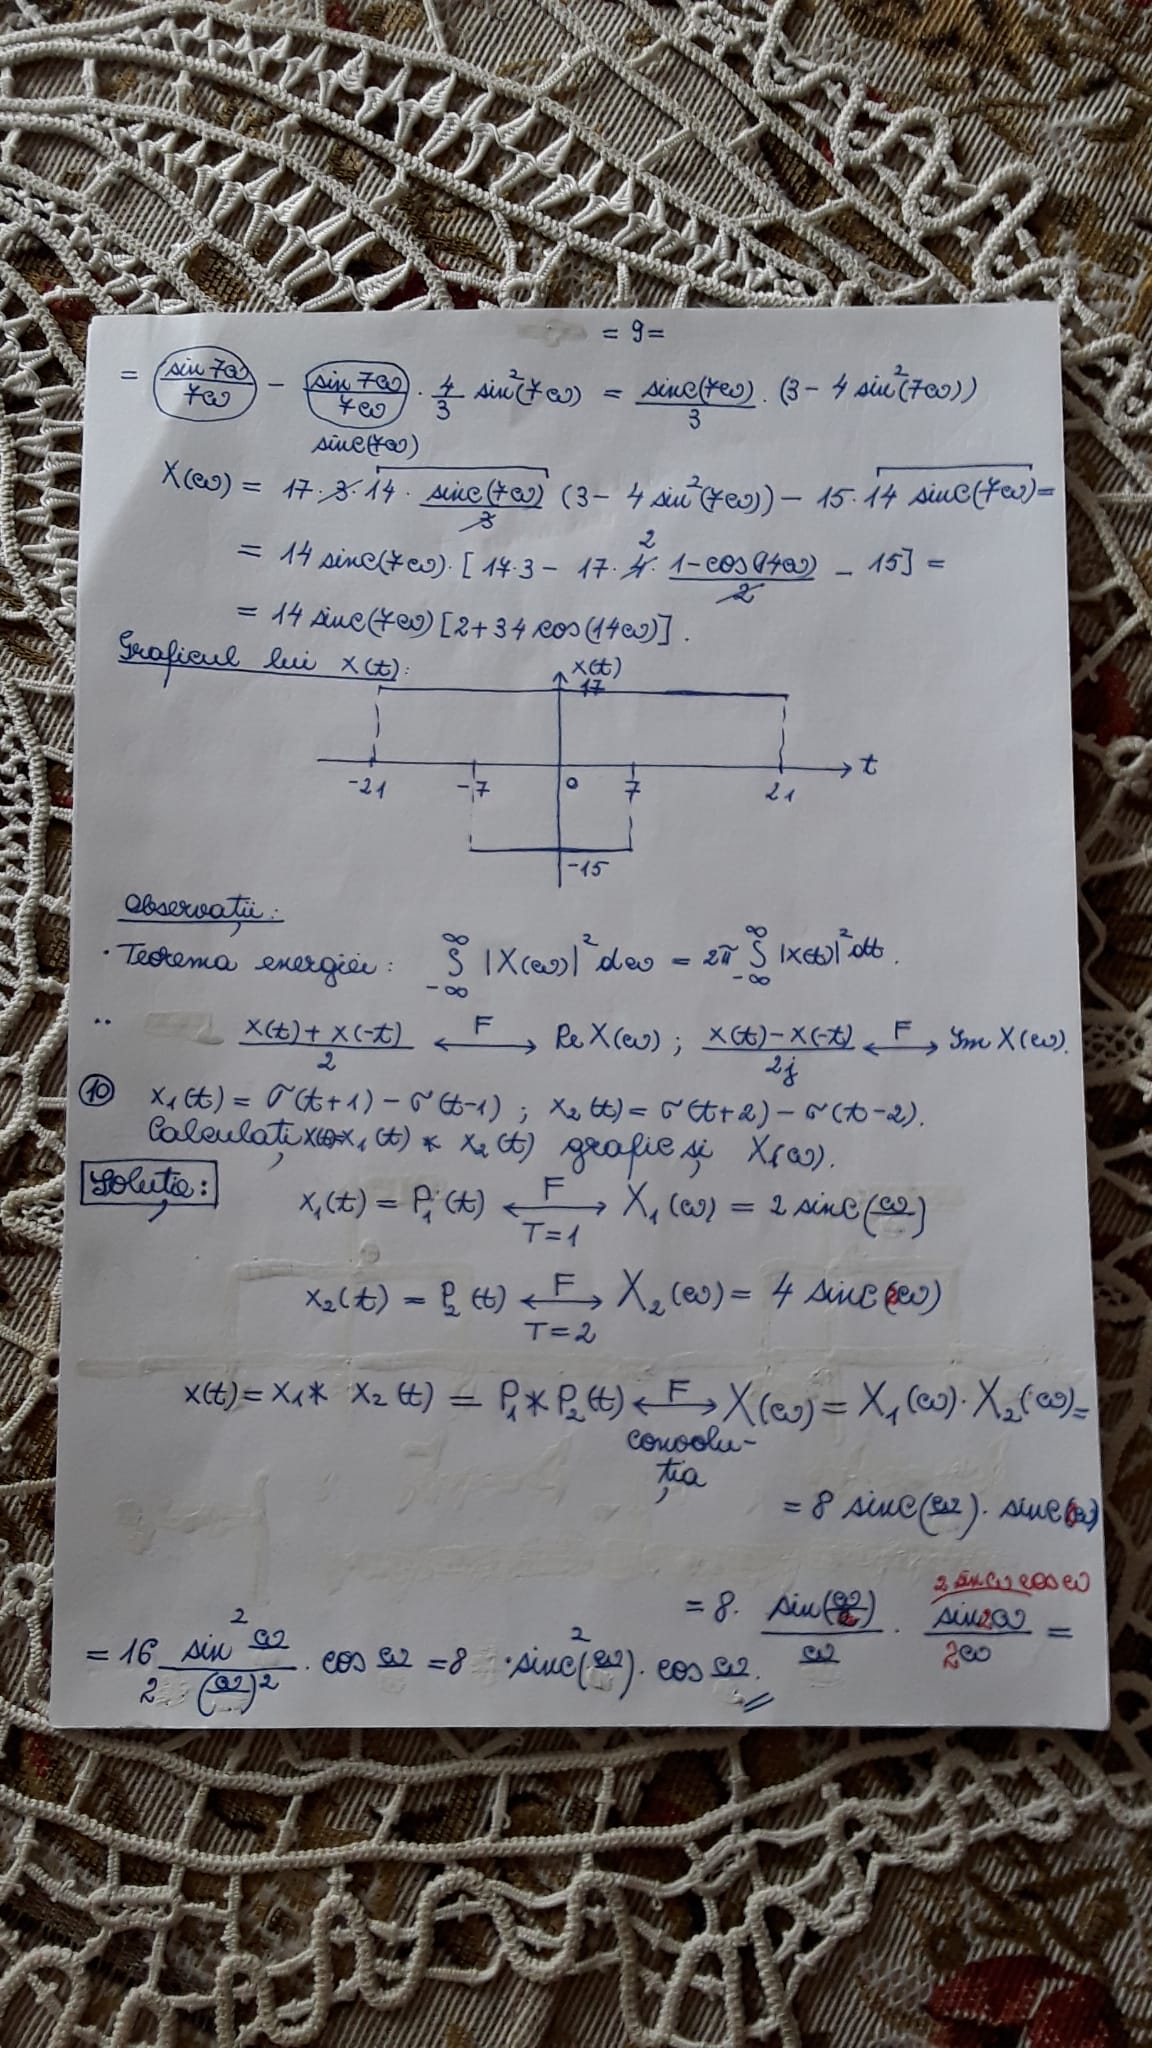 = 9 =
= sin 7ω / 7ω − sin 7ω / 7ω · 4/3 sin²(7ω) = sinc(7ω)/3 · (3 − 4 sin²(7ω))
sinc(7ω)
X(ω) = 17·3·14 · sinc(7ω)/3 (3 − 4 sin²(7ω)) − 15·14 sinc(7ω) =
= 14 sinc(7ω)·[17·3 − 17·4· (1−cos(14ω))/2 − 15] =
2
= 14 sinc(7ω)[2+34 cos(14ω)].
Graficul lui x(t):
x(t)
17
-21 -7 0 7 21 t
-15
Observații:
· Teorema energiei: ∫_{-∞}^{∞} |X(ω)|² dω = 2π ∫_{-∞}^{∞} |x(t)|² dt.
·· (x(t)+x(-t))/2 ⟷F Re X(ω) ; (x(t)−x(-t))/2j ⟷F Im X(ω).
⑩ x₁(t) = σ(t+1) − σ(t−1) ; x₂(t) = σ(t+2) − σ(t−2).
Calculați x(t)=x₁(t) * x₂(t) grafic și X(ω).
Soluție:
x₁(t) = P₁(t) ⟷F X₁(ω) = 2 sinc(ω)
T=1
x₂(t) = P₂(t) ⟷F X₂(ω) = 4 sinc(2ω)
T=2
x(t) = x₁ * x₂(t) = P₁*P₂(t) ⟷F X(ω) = X₁(ω)·X₂(ω) =
convolu-
ția
= 8 sinc(ω)· sinc(
2 sin ω cos ω
= 8· sin(ω)/ω · sin2ω/2ω =
= 16/2 sin²ω/(ω)² · cos ω = 8 · sinc²(ω)· cos ω.